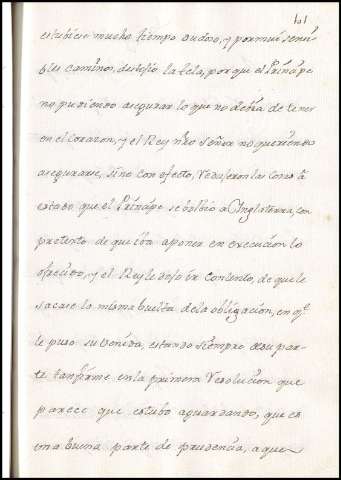 101
estubiese mucho tiempo dudoso, y por mui sensi
bles caminos, destejio la tela, porque el Prinzipe
no pudiendo asegurar lo que no debia de tener
en el corazon, y el Rey nro señor no queriendo
asegurarse, sino con efecto, reduxeron las cosas á
estado que el Prinzipe se bolbio a Ynglaterra, con
pretexto de que iba a poner en execucion lo
ofrecido, y el Rey le dejo ir contento, de que le
sacase la misma buelta de la obligacion, en q.e
le puso su venida, estando siempre de su par
te tan firme en la primera resolucion que
parece que estubo aguardando, que es
una buena parte de prudencia, a que